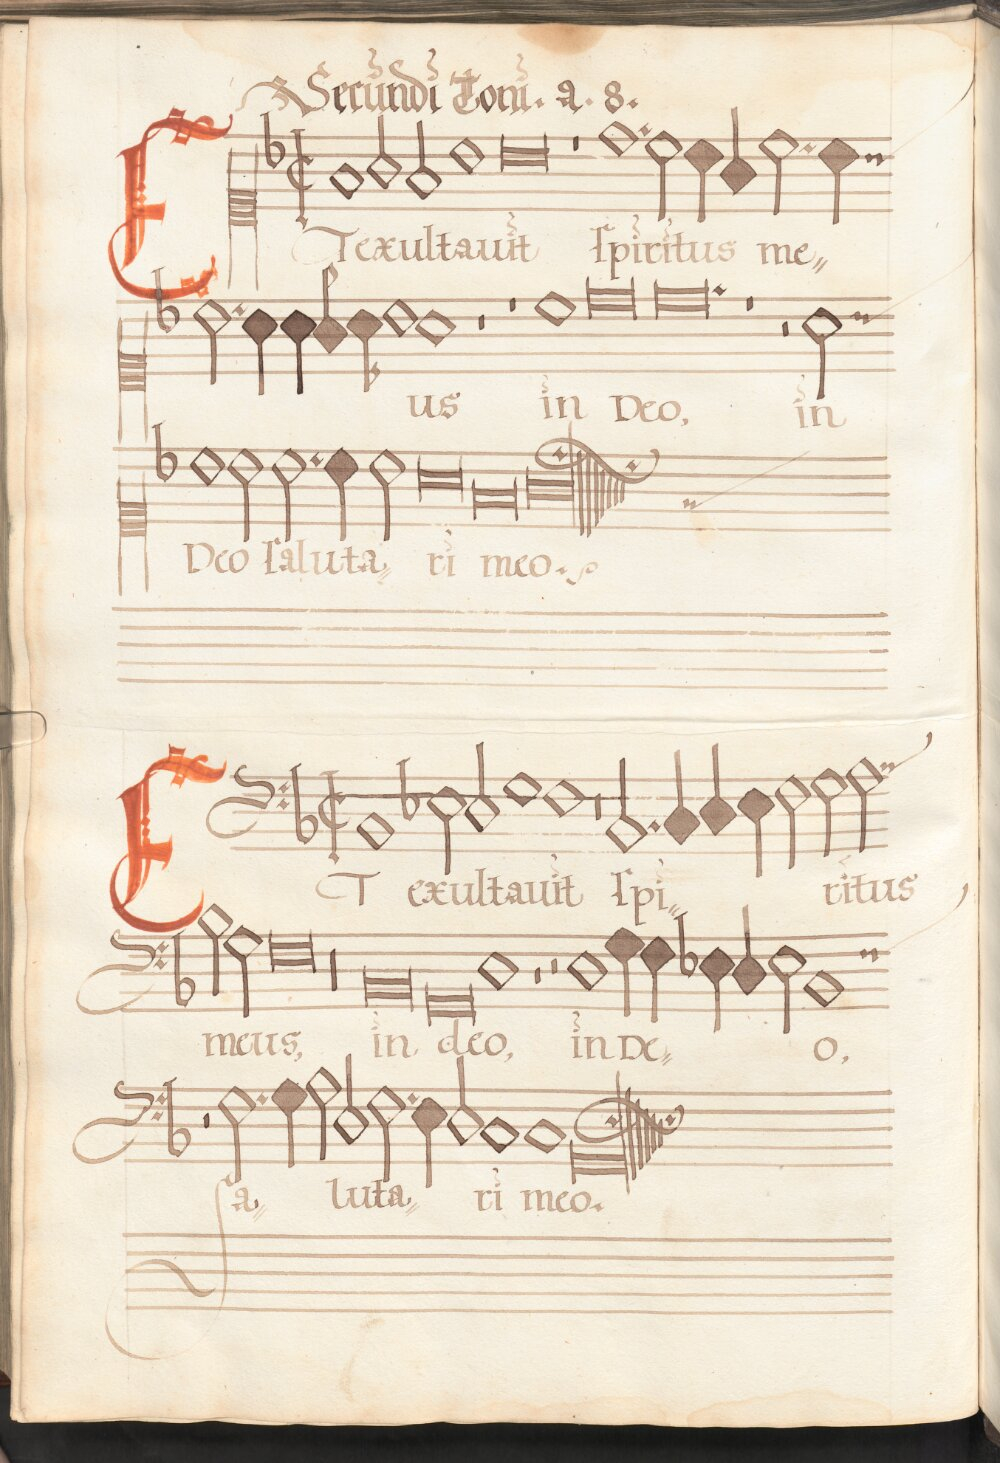 Secundi Toni. a. 8.
ET exultauit spiritus me„
us in Deo, in
Deo saluta„ ri meo.
ET exultauit spi„ ritus
meus, in deo, in De„ o,
sa„ luta„ ri meo.